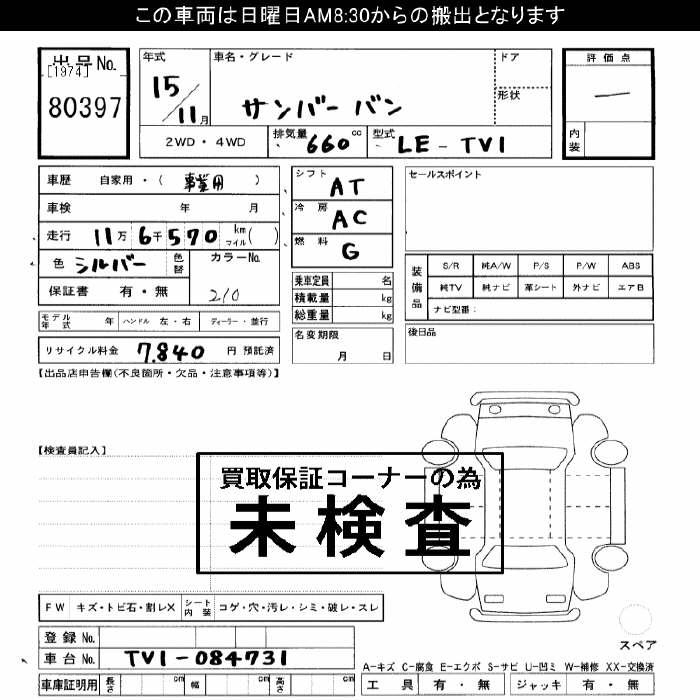 この車両は日曜日AM8:30からの搬出となります
出品No.
[1974]
80397
年式
15/11月
車名・グレード
サンバー バン
ドア
形状
2WD・4WD
排気量 660 cc
型式 LE-TV1
評価点
—
内装
車歴 自家用・( 事業用 )
車検 年 月
走行 11万 6千 570 km マイル ( )
色 シルバー 色替
カラーNo.
210
保証書 有・無
モデル年式 年 ハンドル 左・右 ディーラー・並行
リサイクル料金 7,840 円 預託済
シフト AT
冷房 AC
燃料 G
乗車定員 名
積載量 kg
総重量 kg
名変期限
月 日
セールスポイント
装備品
S/R 純A/W P/S P/W ABS
純TV 純ナビ 革シート 外ナビ エアB
ナビ型番:
後日品
【出品店申告欄(不良箇所・欠品・注意事項等)】
【検査員記入】
買取保証コーナーの為
未検査
FW キズ・トビ石・割レX シート内装 コゲ・穴・汚レ・シミ・破レ・スレ
登録No.
車台No. TV1-084731
車庫証明用 長さ cm 幅 cm 高さ cm
スペア
A-キズ C-腐食 E-エクボ S-サビ U-凹ミ W-補修 XX-交換済
工具 有・無 ジャッキ 有・無